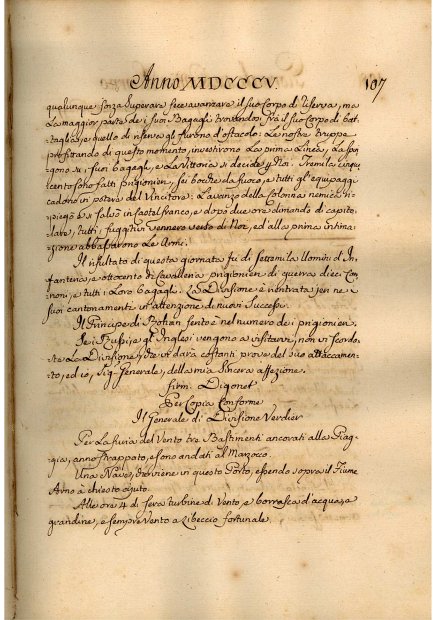 Anno MDCCCV. 107
qualunque forza superare fece avanzare il suo Corpo di riserva, ma
la maggior parte de i suoi Bagagli trovandosi frà il suo Corpo di bat-
taglia, e quello di riserva gli furono d'ostacolo: Le nostre truppe
profittando di questo momento, investirono La prima Linea, La
gono i suoi bagagli, e La Vittoria si decide p Noi. Tremila cinque
cento sono fatti prigionieri, sei bocche da fuoco, e tutti gl'equipaggi
cadono in potere del Vincitore: L'avanzo della Colonna nemica ri-
piegò e si salvò in Castel franco, e dopo due ore dimandò di capito-
lare, tutti i fuggitivi vennero verso di Noi, ed alla prima intima-
zione abbassarono Le Armi.
Il risultato di questa giornata fu di settemila Uomini d'In-
fanteria, e ottocento di Cavalleria prigionieri di guerra dieci Can-
noni, e tutti i Loro bagagli. La Divisione è rientrata jeri ne i
suoi cantonamenti in attenzione di nuovi Successi.
Il Principe di Rohan ferito è nel numero dei prigionieri.
Se i Russi, e gl'Inglesi vengono a visitarvi, non vi scorda-
te La Divisione, Essa vi darà costanti prove del suo attaccamen-
to, ed io, Sig. Generale, della mia sincera affezione.
firm. Digonet
Per Copia Conforme
Il Generale di Divisione Verdier
Per La furia del Vento tra Bastimenti ancorati alla Piag-
gia, anno strappato, e sono andati al Marzoco.
Una Nave, proveniente in questo Porto, essendo sopra il Fiume
Arno à chiesto ajuto.
Alle ore 4 di sera turbine di Vento, e borrasca d'acqua, e
grandine, e sempre Vento a Libeccio fortunale.